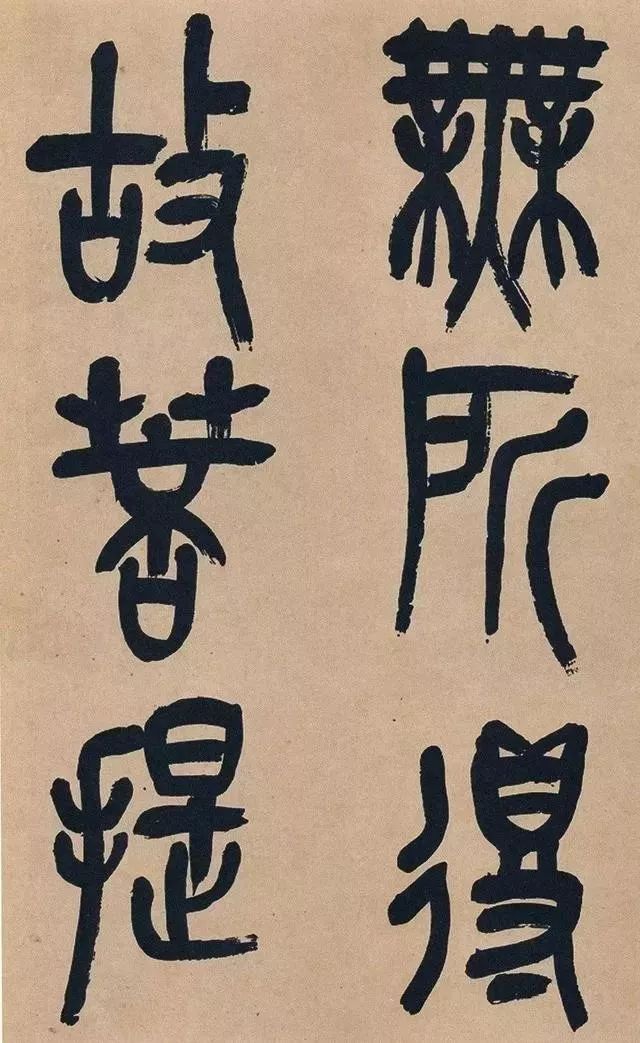 無所得
故菩提